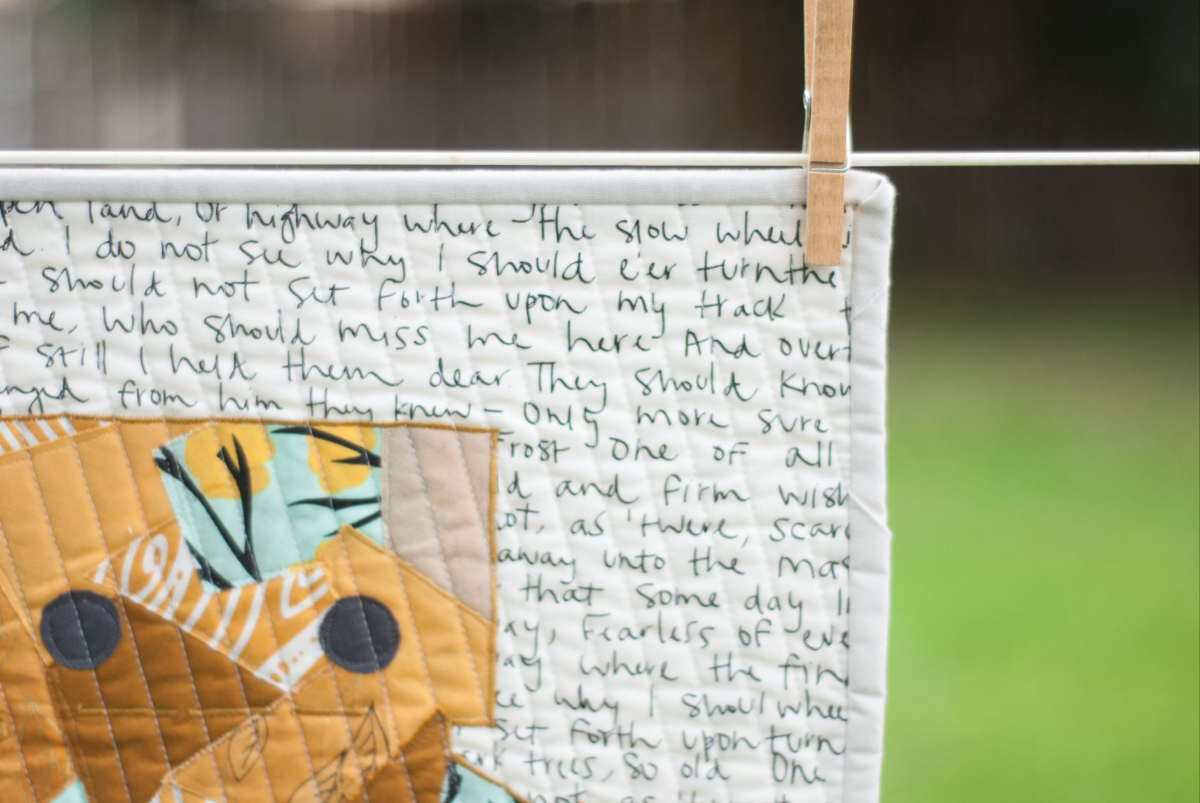 land, Or highway where the slow wheel
d. I do not see why I should e'er turn the
should not set forth upon my track t
me, who should miss me here And over
f still I held them dear. They should know
anged from him they knew – Only more sure
Frost One of all
d and firm wish
not, as 'twere, scar
away unto the ma
that some day I
ay, Fearless of eve
way where the fin
ee why I should whee
set forth upon turn
ark trees, so old One
not as 'twere t